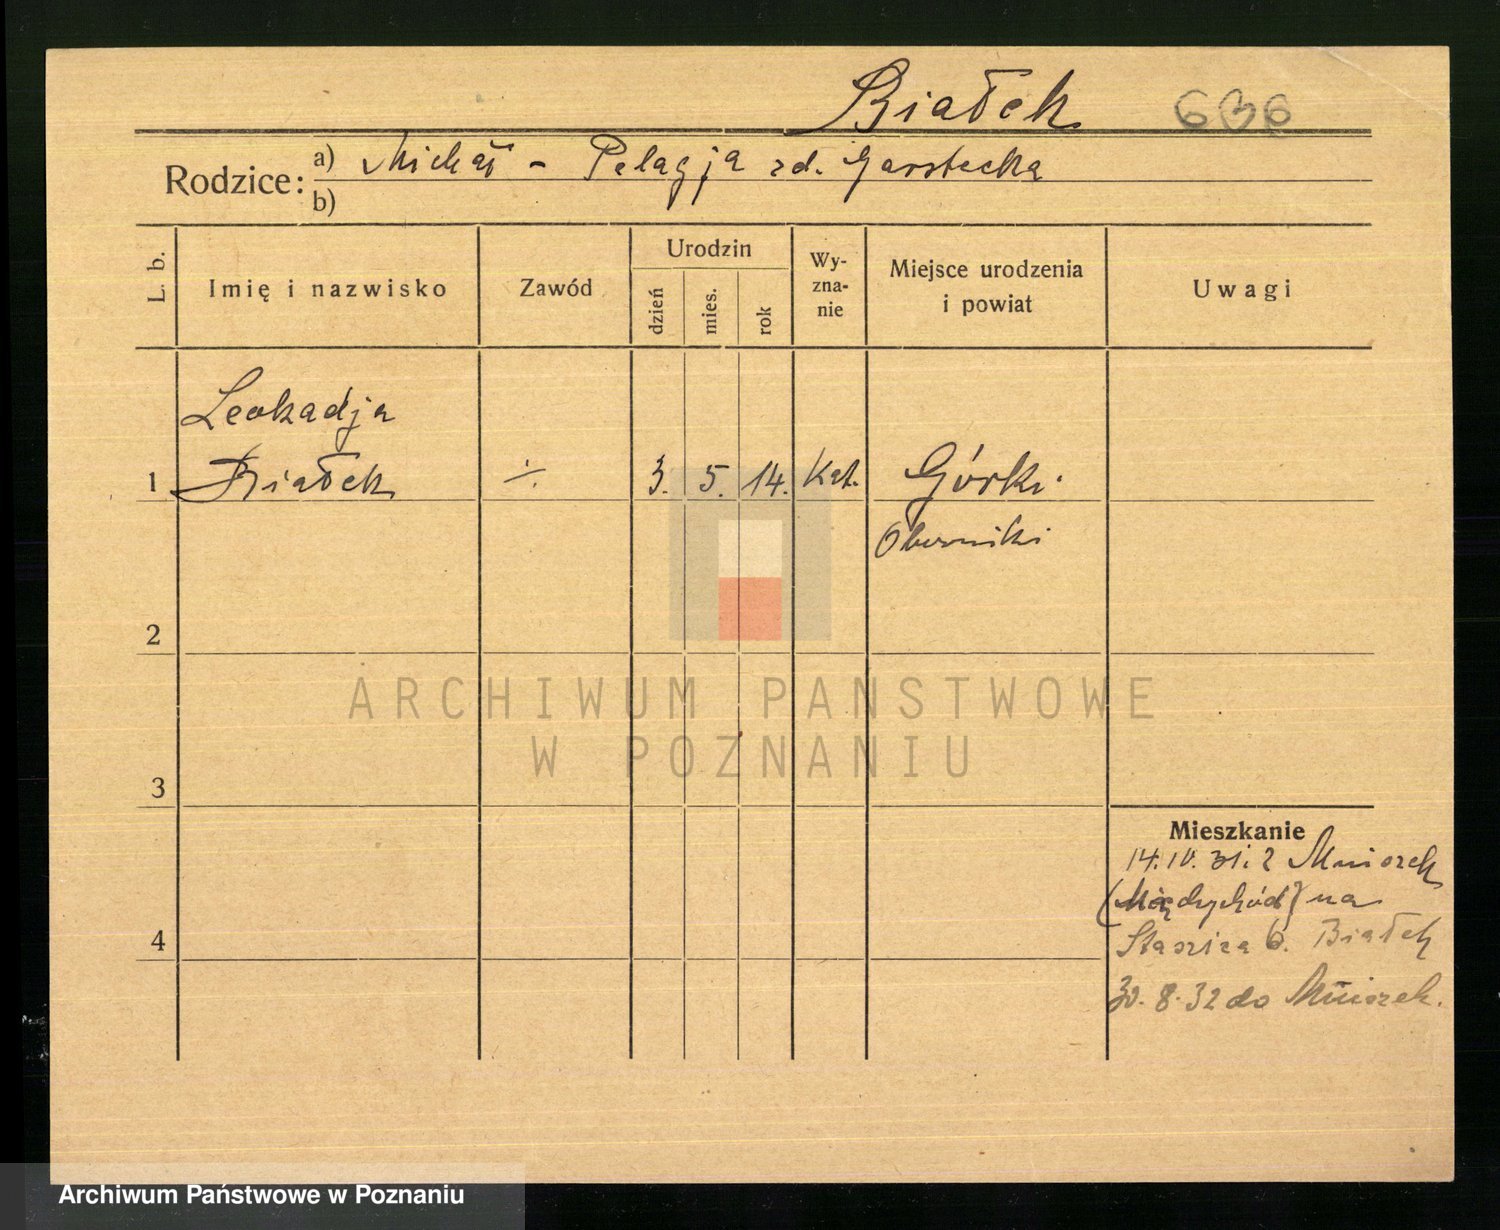 Białek 636
Rodzice: a) Michał - Pelagja zd. Garstecka
b)
L. b.
Imię i nazwisko
Zawód
Urodzin
dzień
mies.
rok
Wy-
zna-
nie
Miejsce urodzenia
i powiat
Uwagi
Leokadja
1 Białek ÷ 3. 5. 14. Kat. Górki
Oborniki
2
ARCHIWUM PAŃSTWOWE
W POZNANIU
3
Mieszkanie
14.IV.31. z Mniszek
(Międzychód) na
4
Staszica 6. Białek
30.8.32 do Mniszek.
Archiwum Państwowe w Poznaniu